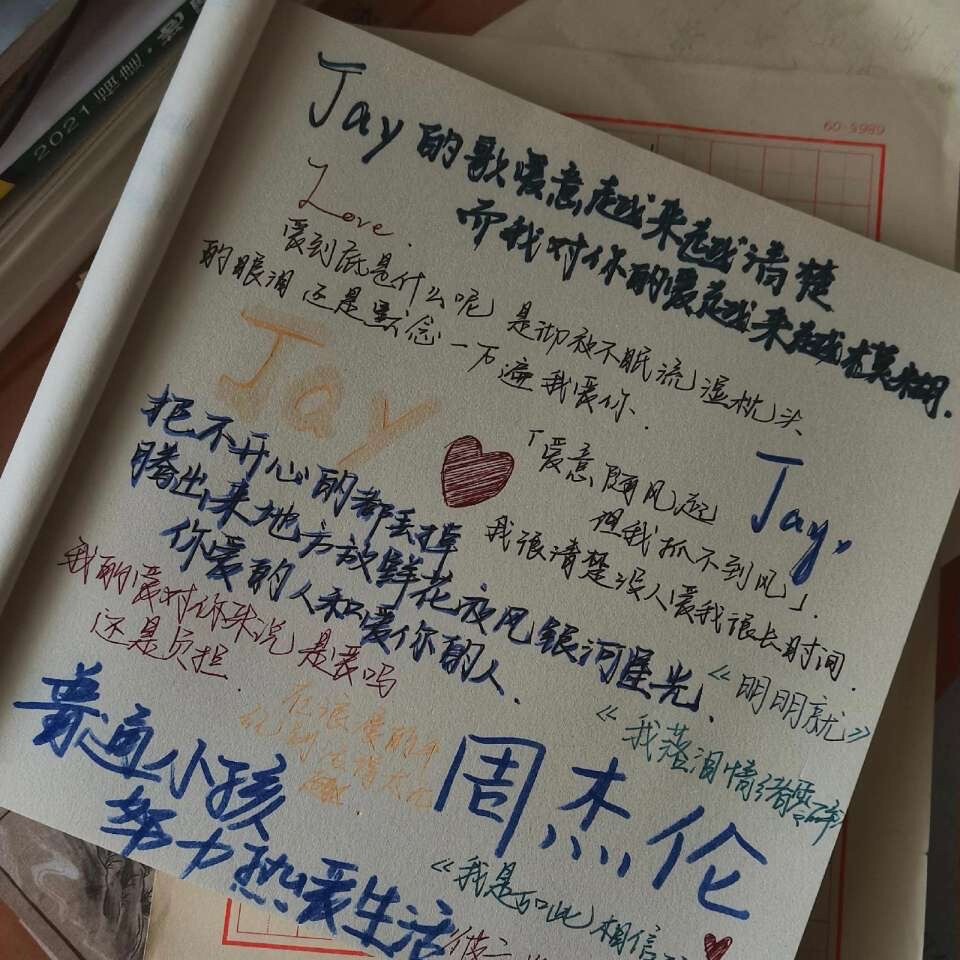 Jay的歌爱意越来越清楚
而我对你的爱越来越模糊.
Love.
爱到底是什么呢 是彻夜不眠流湿枕头
的眼泪 还是默念一万遍我爱你.
Jay
Jay,
「爱意随风起
但我抓不到风」.
我很清楚没人爱我很长时间.
把不开心的都丢掉
腾出来地方放鲜花夜风银河星光.
你爱的人和爱你的人.
我的爱对你来说是爱吗
还是负担
《明明就》
《我落泪情绪零碎》
普通小孩
努力热爱生活
周杰伦
《我是如此相信
2021
60-5989